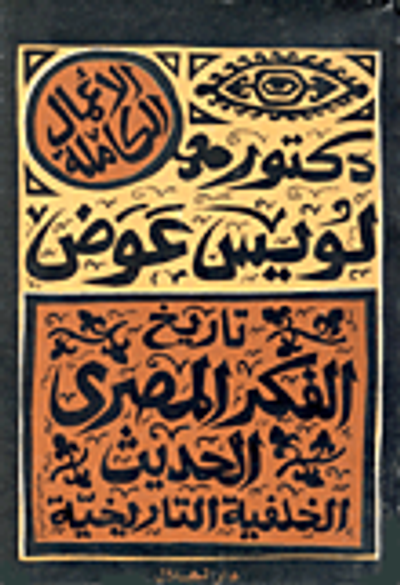 الأعمال
الكاملة
دكتور
لويس عوض
تاريخ
الفكر المصرى
الحديث
الخلفية التاريخية
دار الهلال